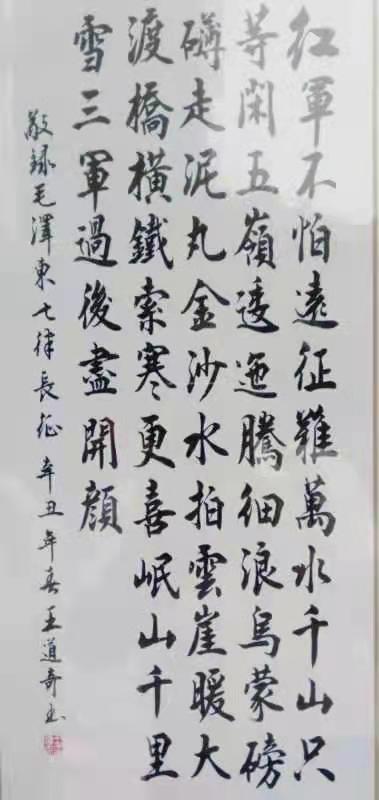 紅軍不怕遠征難萬水千山只
等閑五嶺逶迤騰細浪烏蒙磅
礴走泥丸金沙水拍雲崖暖大
渡橋橫鐵索寒更喜岷山千里
雪三軍過後盡開顏
敬録毛澤東七律長征辛丑年春王道奇书